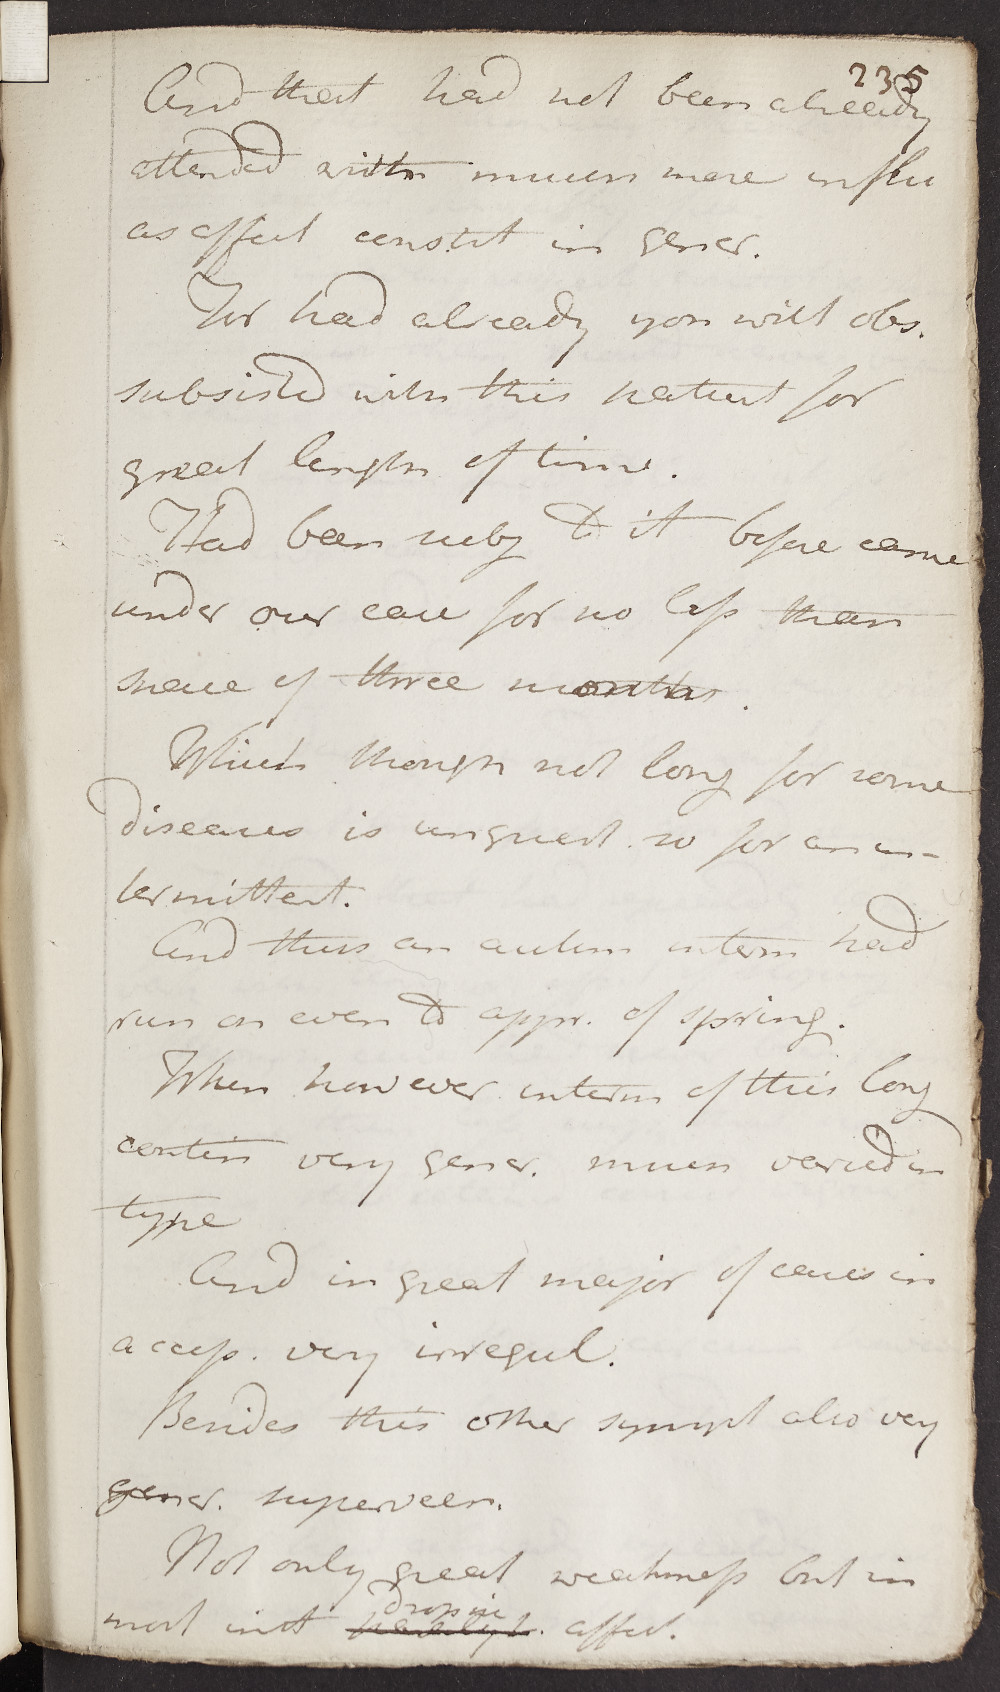 235
And that had not been already
attended with much more influ
as affect constit in gener.
For had already you will obs.
subsisted with this patient for
great length of time.
Had been subj to it before came
under our care for no less than
space of three months.
Which though not long for some
diseases is unquest. so for an in-
termittent.
And thus an autum interm had
run on even to appr. of spring.
When however interm of this long
contin very gener. much varied in
type
And in great major of cases in
access. very irregul.
Besides this other sympt also very
gener. superveen.
Not only great weakness but in
dropsic
most instt paralyt. affect.